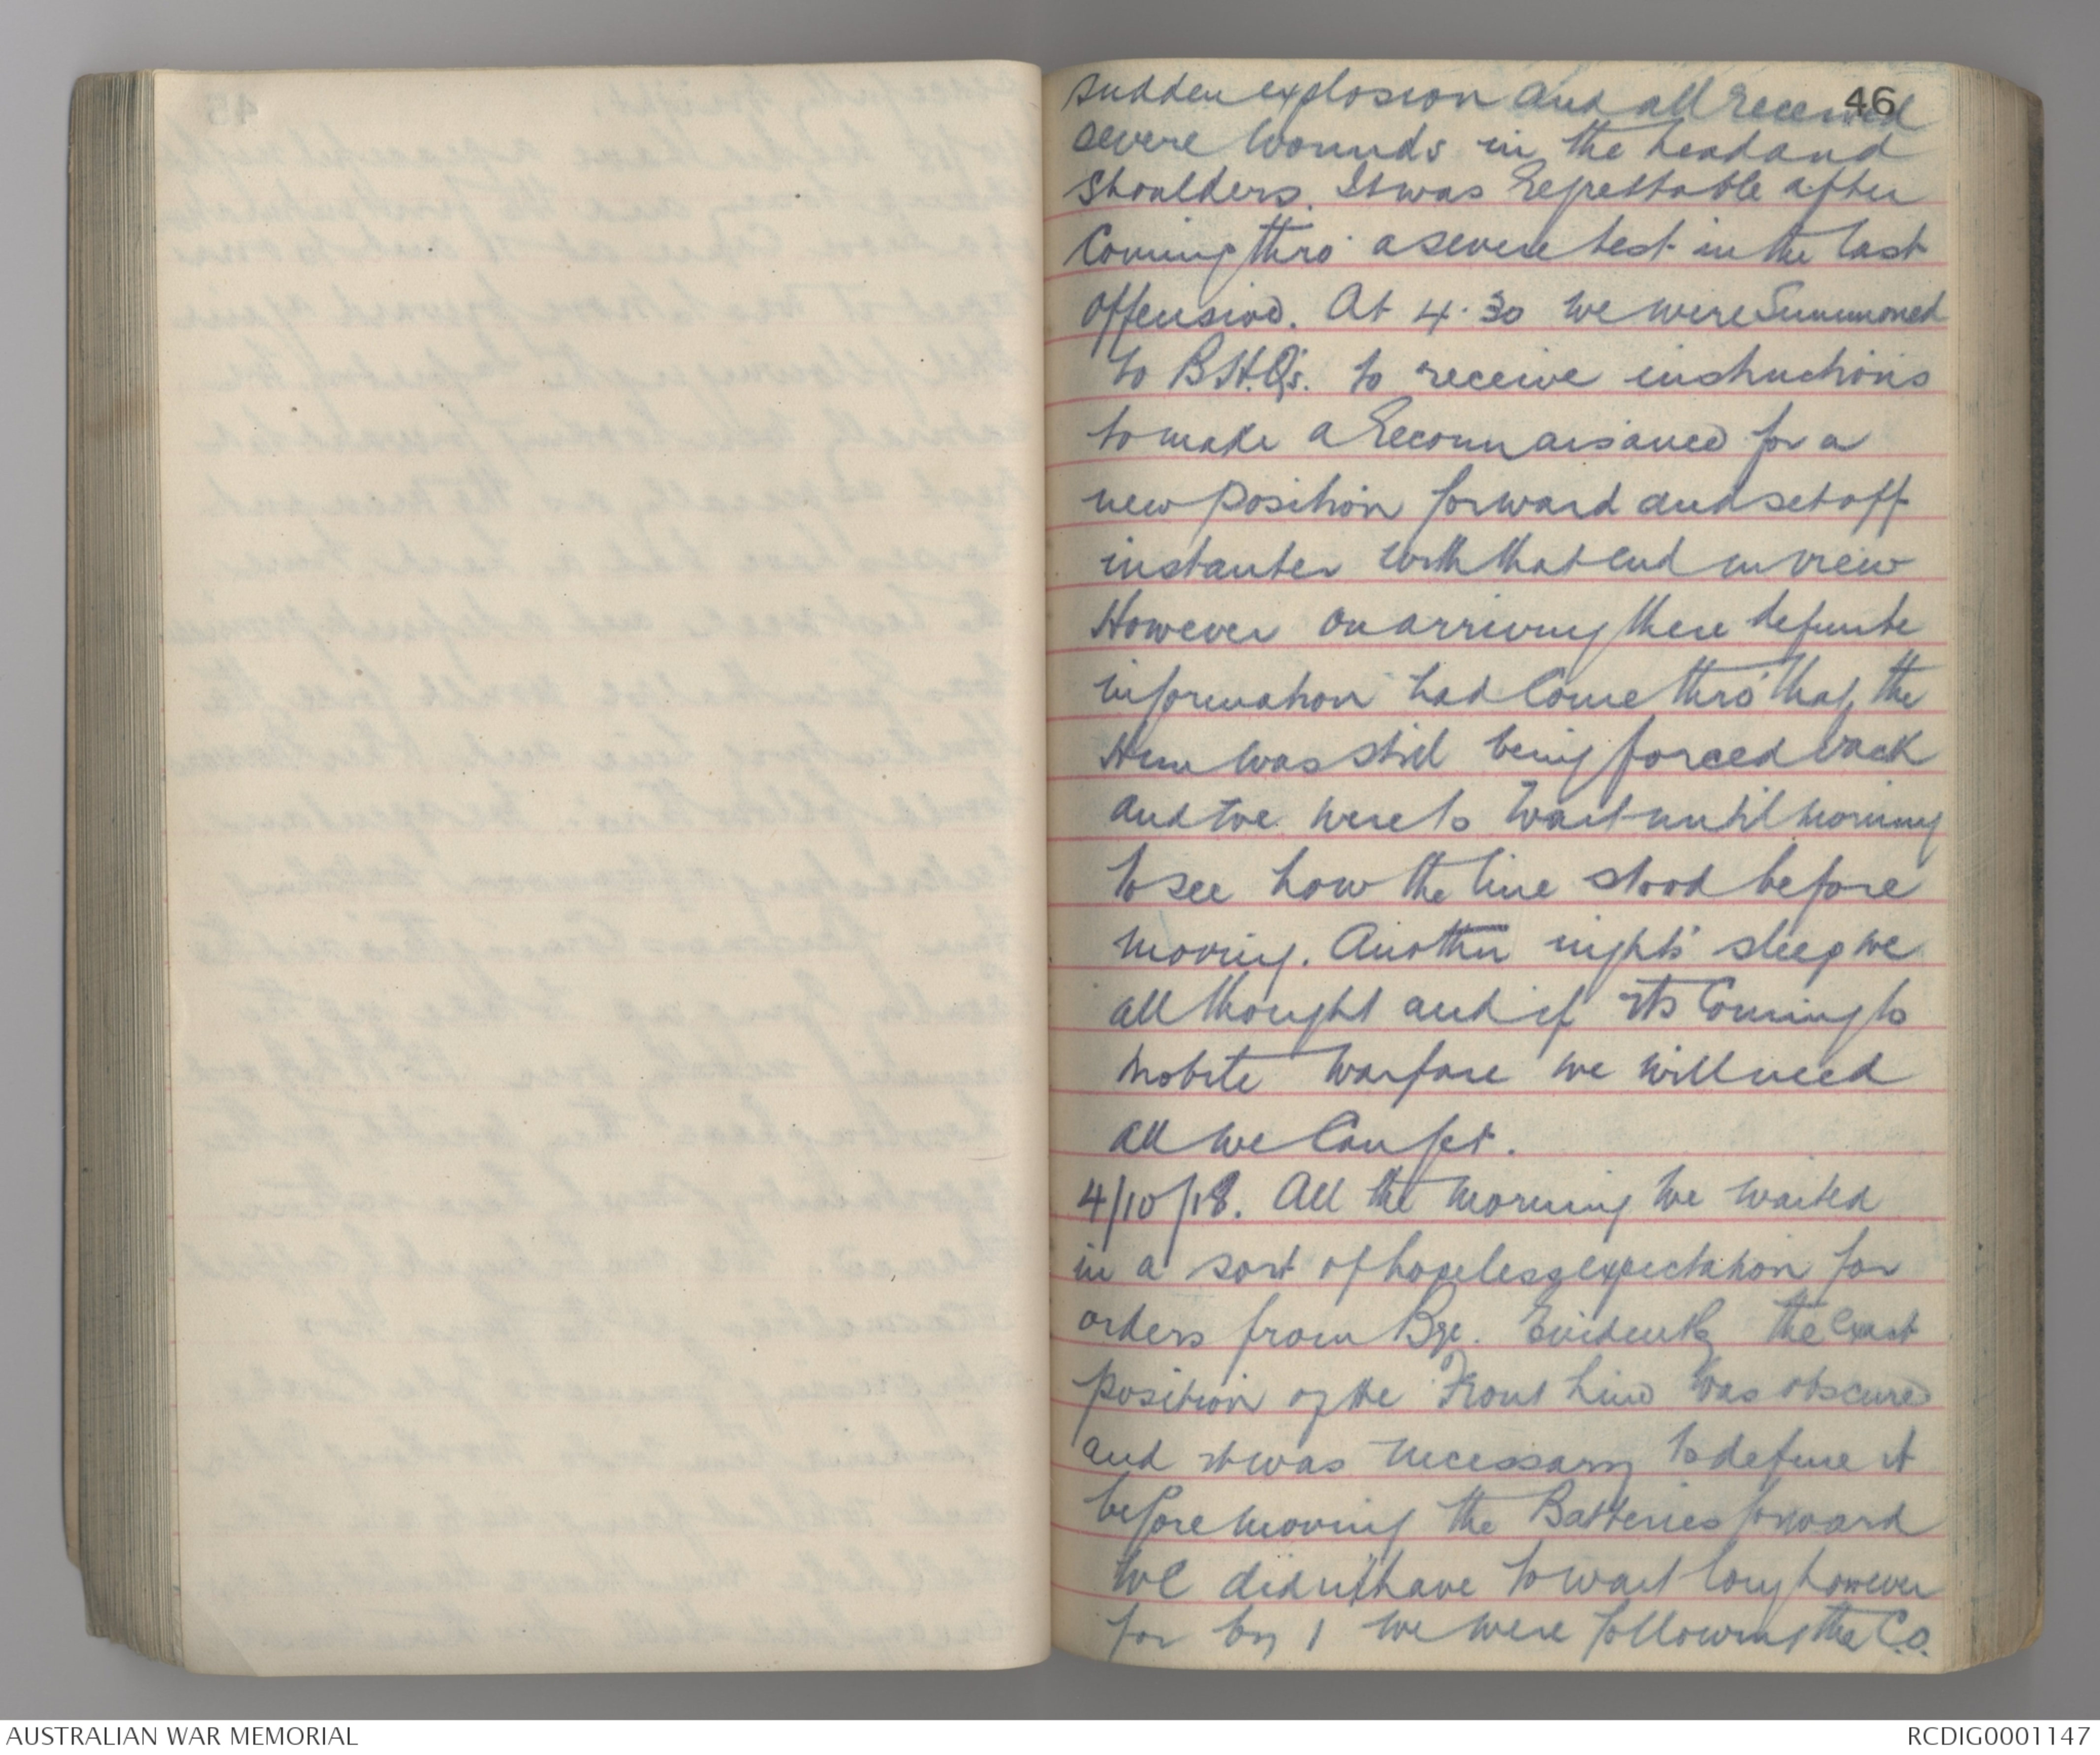 46
sudden explosion and all received
severe wounds in the head and
shoulders. It was regrettable after
coming thro' a severe test in the last
offensive. At 4.30 we were summoned
to B.H.Q's. to receive instructions
to make a reconnaisance for a
new position forward and set off
instanter with that end in view
However on arriving there definite
information had come thro' that the
Hun was still being forced back
and we were to wait until morning
to see how the line stood before
moving. Another night's sleep we
all thought and if its coming to
mobile warfare we will need
all we can get.
4/10/18. All the morning we waited
in a sort of hopeless expectation for
orders from Bge. Evidently the exact
position of the Front Line was obscured
and it was necessary to define it
before moving the Batteries forward
We didn't have to wait long however
for by 1 we were following the C.O.
AUSTRALIAN WAR MEMORIAL
RCDIG0001147